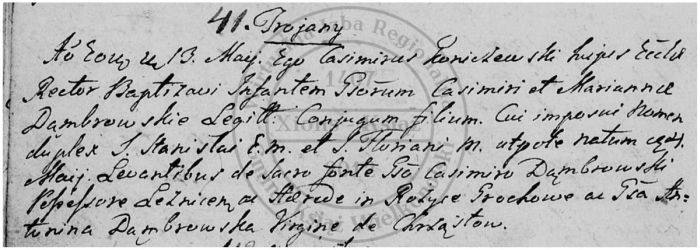 41. Trojany
Aō Eoūq 13. Maij. Ego Casimirus hujus Eccliæ
Rector Baptizavi Infantem Gsōrum Casimiri et Mariannæ
Dąmbrowskie Legitt: Conjugum filium. Cui imposui Nomen
duplex S. Stanislai E. m. et S. Floriani m. utpote natum
Maij. Levantibus de Sacro fonte Gsō Casimiro Dąmbrowski
Possessore et Hærede in Rożyce Grochowe ac Gsā An-
tonina Dąmbrowska Virgine de Chrząstow.